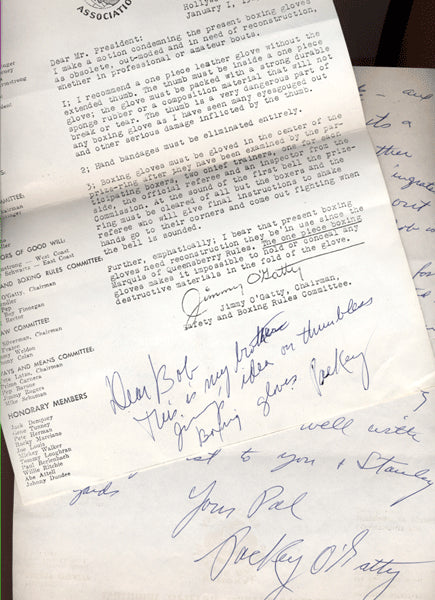 ASSOCIATION
Hollyw
January 1, 19
Dear Mr. President:
I make a motion condemning the present boxing gloves
as obsolete, out-moded and in need of reconstruction,
whether in professional or amateur bouts.
1; I recommend a one piece leather glove without the
extended thumb. The thumb must be inside a one piece
glove; the glove must be packed with a strong durable
sponge rubber or a composition material that will not
break or tear. The thumb is a very dangerous part of
any boxing glove as I have seen many eyes gouged out
and other serious damage inflicted by the thumb.
2; Hand bandages must be eliminated entirely.
3; Boxing gloves must be gloved in the center of the
prize-ring after they have been examined by the par-
ticipating boxers, two chief trainers, one for each
side, the official referee and an inspector from the
Commission. At the sound of the first bell the prize-
ring must be cleared of all but the boxers and the
referee who will give final instructions to shake
hands go to their corners and come out fighting when
the bell is sounded.
Further, emphatically; I hear that present boxing
gloves need reconstruction they be in use since the
Marquis of Queensberry Rules. The one piece boxing
gloves makes it impossible to hold or conceal any
destructive materials in the fold of the glove.
Jimmy O'Gatty
Jimmy O'Gatty, Chairman,
Safety and Boxing Rules Committee.
COMMITTEE:
ORS OF GOOD WILL:
nstrong - West Coast
Schwartz - East Coast
AND BOXING RULES COMMITTEE:
O'Gatty, Chairman
Finnegan
AW COMMITTEE:
Silverman, Chairman
Weldon
Colan
WAYS AND MEANS COMMITTEE:
Chairman
Primo Carnera
Barnes
Jimmy Rogers
Mike Schuman
HONORARY MEMBERS
Jack Dempsey
Gene Tunney
Pete Herman
Rocky Marciano
Joe Louis
Mickey Walker
Tommy Loughran
Paul Berlenbach
Willie Ritchie
Abe Attell
Johnny Dundee
Dear Bob
This is my brother
Jimmy's idea on thumbless
Boxing gloves Packey
well with
st to you + Stanley
Your Pal
Packey O'Gatty